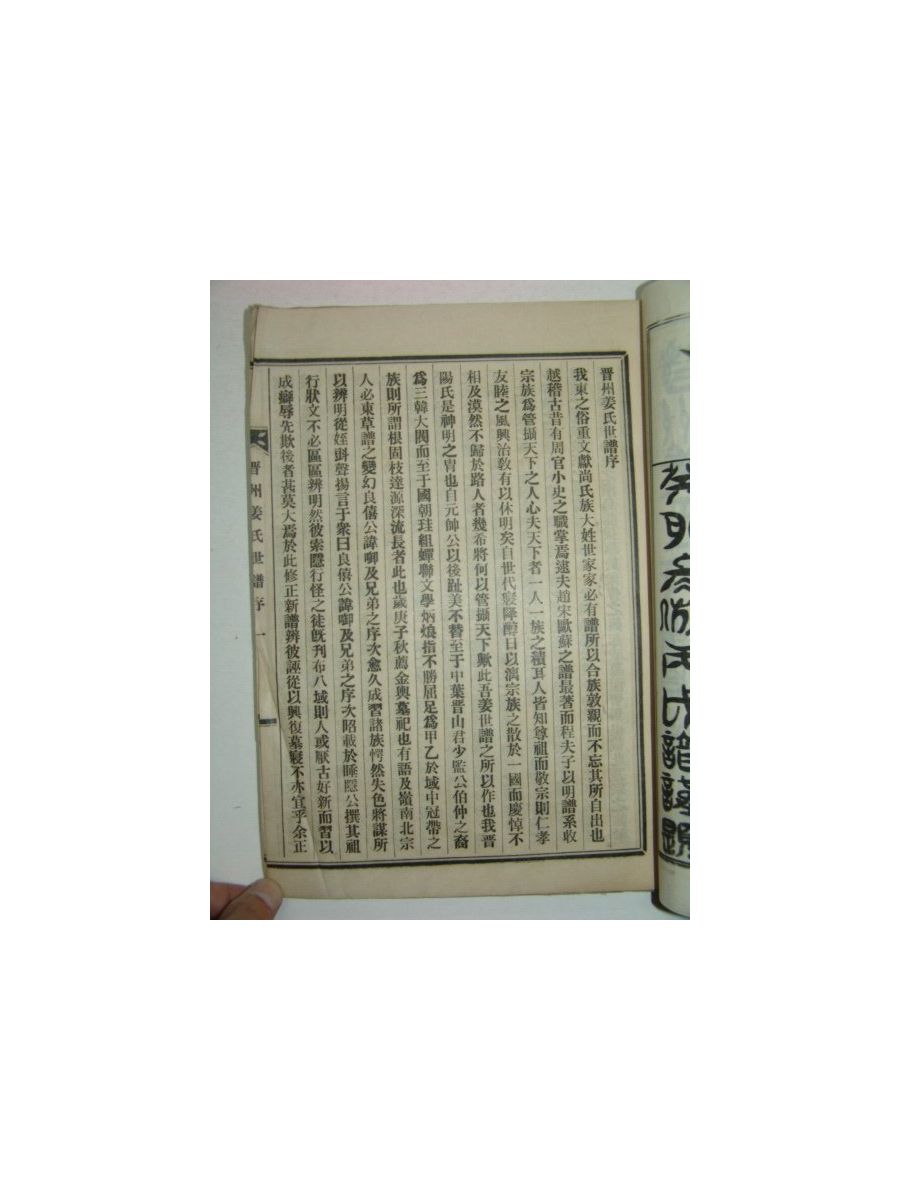 晋州姜氏世譜序
我東之俗重文獻尚氏族大姓世家家必有譜所以合族敦親而不忘其所自出也
越稽古昔有周官小史之職掌焉逮夫趙宋歐蘇之譜最著而程夫子以明譜系收
宗族爲管攝天下之人心夫天下者一人一族之積耳人皆知尊祖而敬宗則仁孝
友睦之風興治敎有以休明矣自世代寢降醇日以漓宗族之散於一國而慶悼不
相及漠然不歸於路人者幾希將何以管攝天下歟此吾姜世譜之所以作也我晋
陽氏是神明之胄也自元帥公以後趾美不替至于中葉晋山君少監公伯仲之裔
爲三韓大閥而至于國朝珪組蟬聯文學炳燒指不勝屈足爲甲乙於域中冠帶之
族則所謂根固枝達源深流長者此也歲庚子秋薦金輿墓祀也有語及嶺南北宗
人必東草譜之變幻良僖公諱啣及兄弟之序次愈久成習諸族愕然失色將謀所
以辨明從姪 聲揚言于衆曰良僖公諱啣及兄弟之序次昭載於睡隱公撰其祖
行狀文不必區區辨明然彼索隱行怪之徒旣刊布八域則人或厭古好新而習以
成癖辱先欺後者甚莫大焉於此修正新譜辨彼誣從以興復墓寢不亦宜乎余正
晋州姜氏世譜序 一